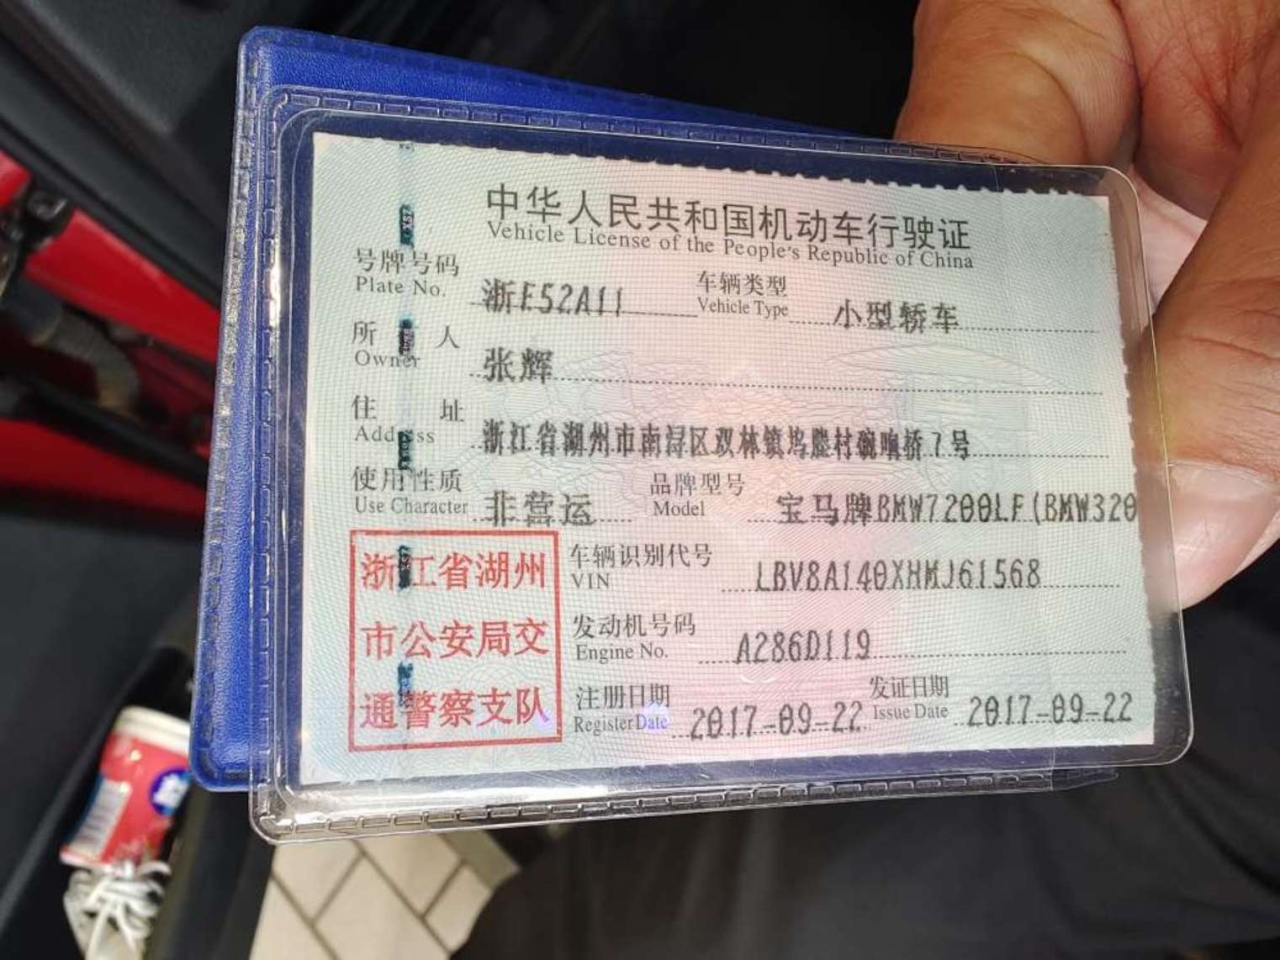 中华人民共和国机动车行驶证
Vehicle License of the People's Republic of China
号牌号码 浙E52A11 车辆类型 小型轿车
Plate No. Vehicle Type
所 人 张辉
Owner
住 址 浙江省湖州市南浔区双林镇坞 村 桥7号
Address
使用性质 非营运 品牌型号 宝马牌BMW7200LF(BMW320
Use Character Model
车辆识别代号 LBV8A140XHMJ61568
VIN
发动机号码 A286D119
Engine No.
注册日期 2017-09-22 发证日期 2017-09-22
Register Date Issue Date
浙江省湖州
市公安局交
通警察支队